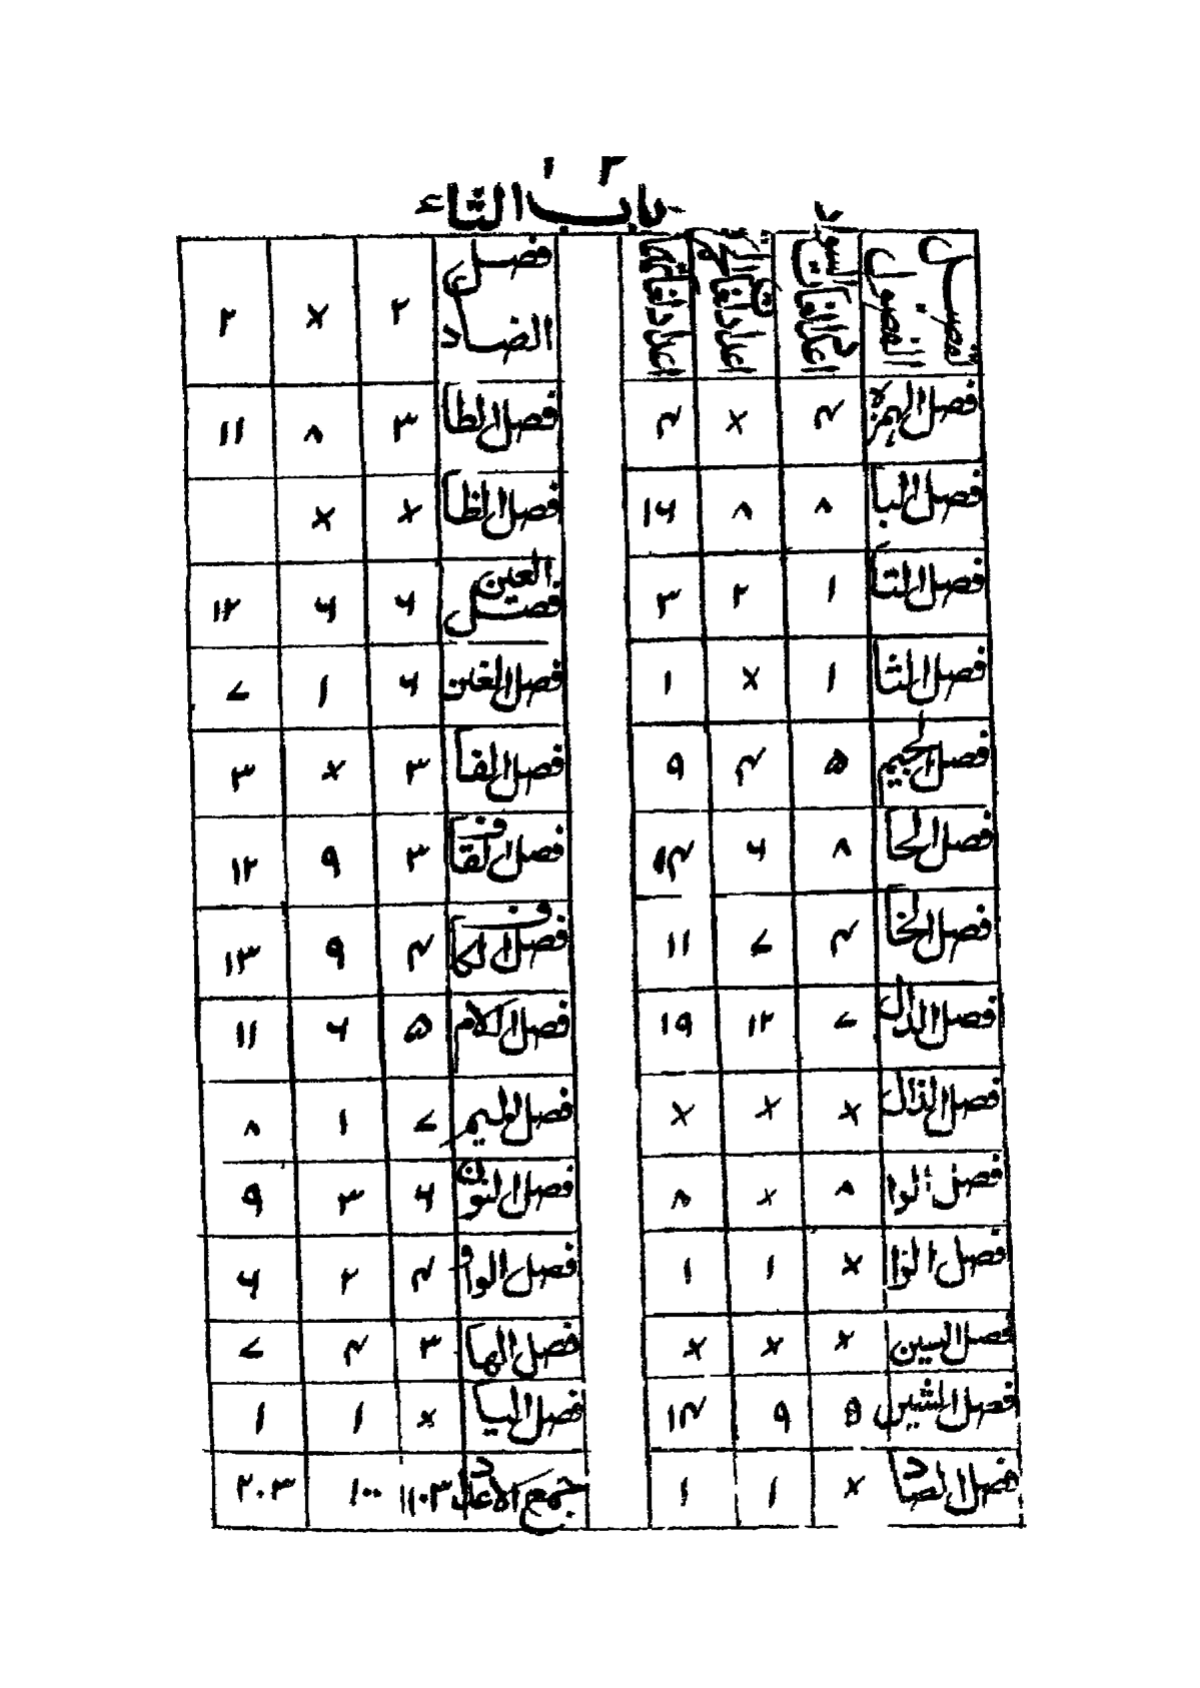 ١ ٢
باب الثاء
تفصيل الفصول
فصل الهمزه ۴ × ۴
فصل البا ٨ ٨ ١۶
فصل التا ١ ٢ ٣
فصل الثا ١ × ١
فصل الجيم ۵ ۴ ٩
فصل الحا ٨ ۶ ١۴
فصل الخا ۴ ٧ ١١
فصل الدال ٧ ١٢ ١٩
فصل الذال × × ×
فصل الرا ٨ × ٨
فصل الزا × ١ ١
فصل السين × × ×
فصل الشين ۵ ٩ ١۴
فصل الصاد × ١ ١
فصل الضاد ٢ × ٢
فصل الطا ٣ ٨ ١١
فصل الظا × ×
فصل العين ۶ ۶ ١٢
فصل الغين ۶ ١ ٧
فصل الفا ٣ × ٣
فصل القاف ٣ ٩ ١٢
فصل الكاف ۴ ٩ ١٣
فصل اللام ۵ ۶ ١١
فصل الميم ٧ ١ ٨
فصل النون ۶ ٣ ٩
فصل الواو ۴ ٢ ۶
فصل الها ٣ ۴ ٧
فصل اليا × ١ ١
جمع الاعداد ١٠٣ ١٠٠ ٢٠٣